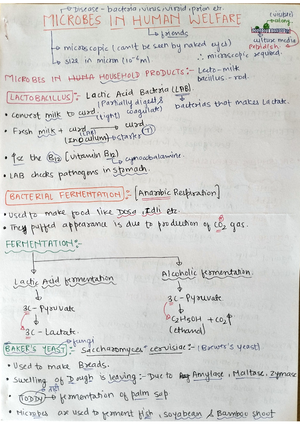 Disease - bacteria, virus, viroid, prion etc.
MICROBES IN HUMAN WELFARE
friends
(visible)
along
culture media
Petridish.
• microscopic (can't be seen by naked eye)
∴ microscope required.
• size in micron (10⁻⁶m)
MICROBES IN HUMA HOUSEHOLD PRODUCTS:-
Lacto - milk
bacillus - rod.
LACTOBACILLUS:- Lactic Acid Bacteria (LAB)
(Partially digest &
coagulate)
bacterias that makes Lactate.
• convert milk to curd.
• Fresh milk + curd → curd
(Inoculum) → starter
• ↑se the B12 [vitamin B12]
cynocobalamine.
• LAB checks pathogens in stomach.
BACTERIAL FERMENTATION:- [Anaerobic Respiration]
• Used to make food like Dosa, Idli etc.
• They puffed appearance is due to production of CO2 gas.
FERMENTATION:-
Lactic Acid fermentation
Alcoholic fermentation.
3C - Pyruvate
3C - Pyruvate
3C - Lactate.
C2H5OH + CO2↑
(ethanol)
fungi
BAKER'S YEAST:- "Saccharomyces cervisiae":- (Brewer's yeast)
• Used to make Breads.
• Swelling of Dough is leaving:- Due to Amylase, Maltase, Zymase
• TODDY → fermentation of palm sap
• Microbes are used to ferment fish, soyabean & Bamboo shoot